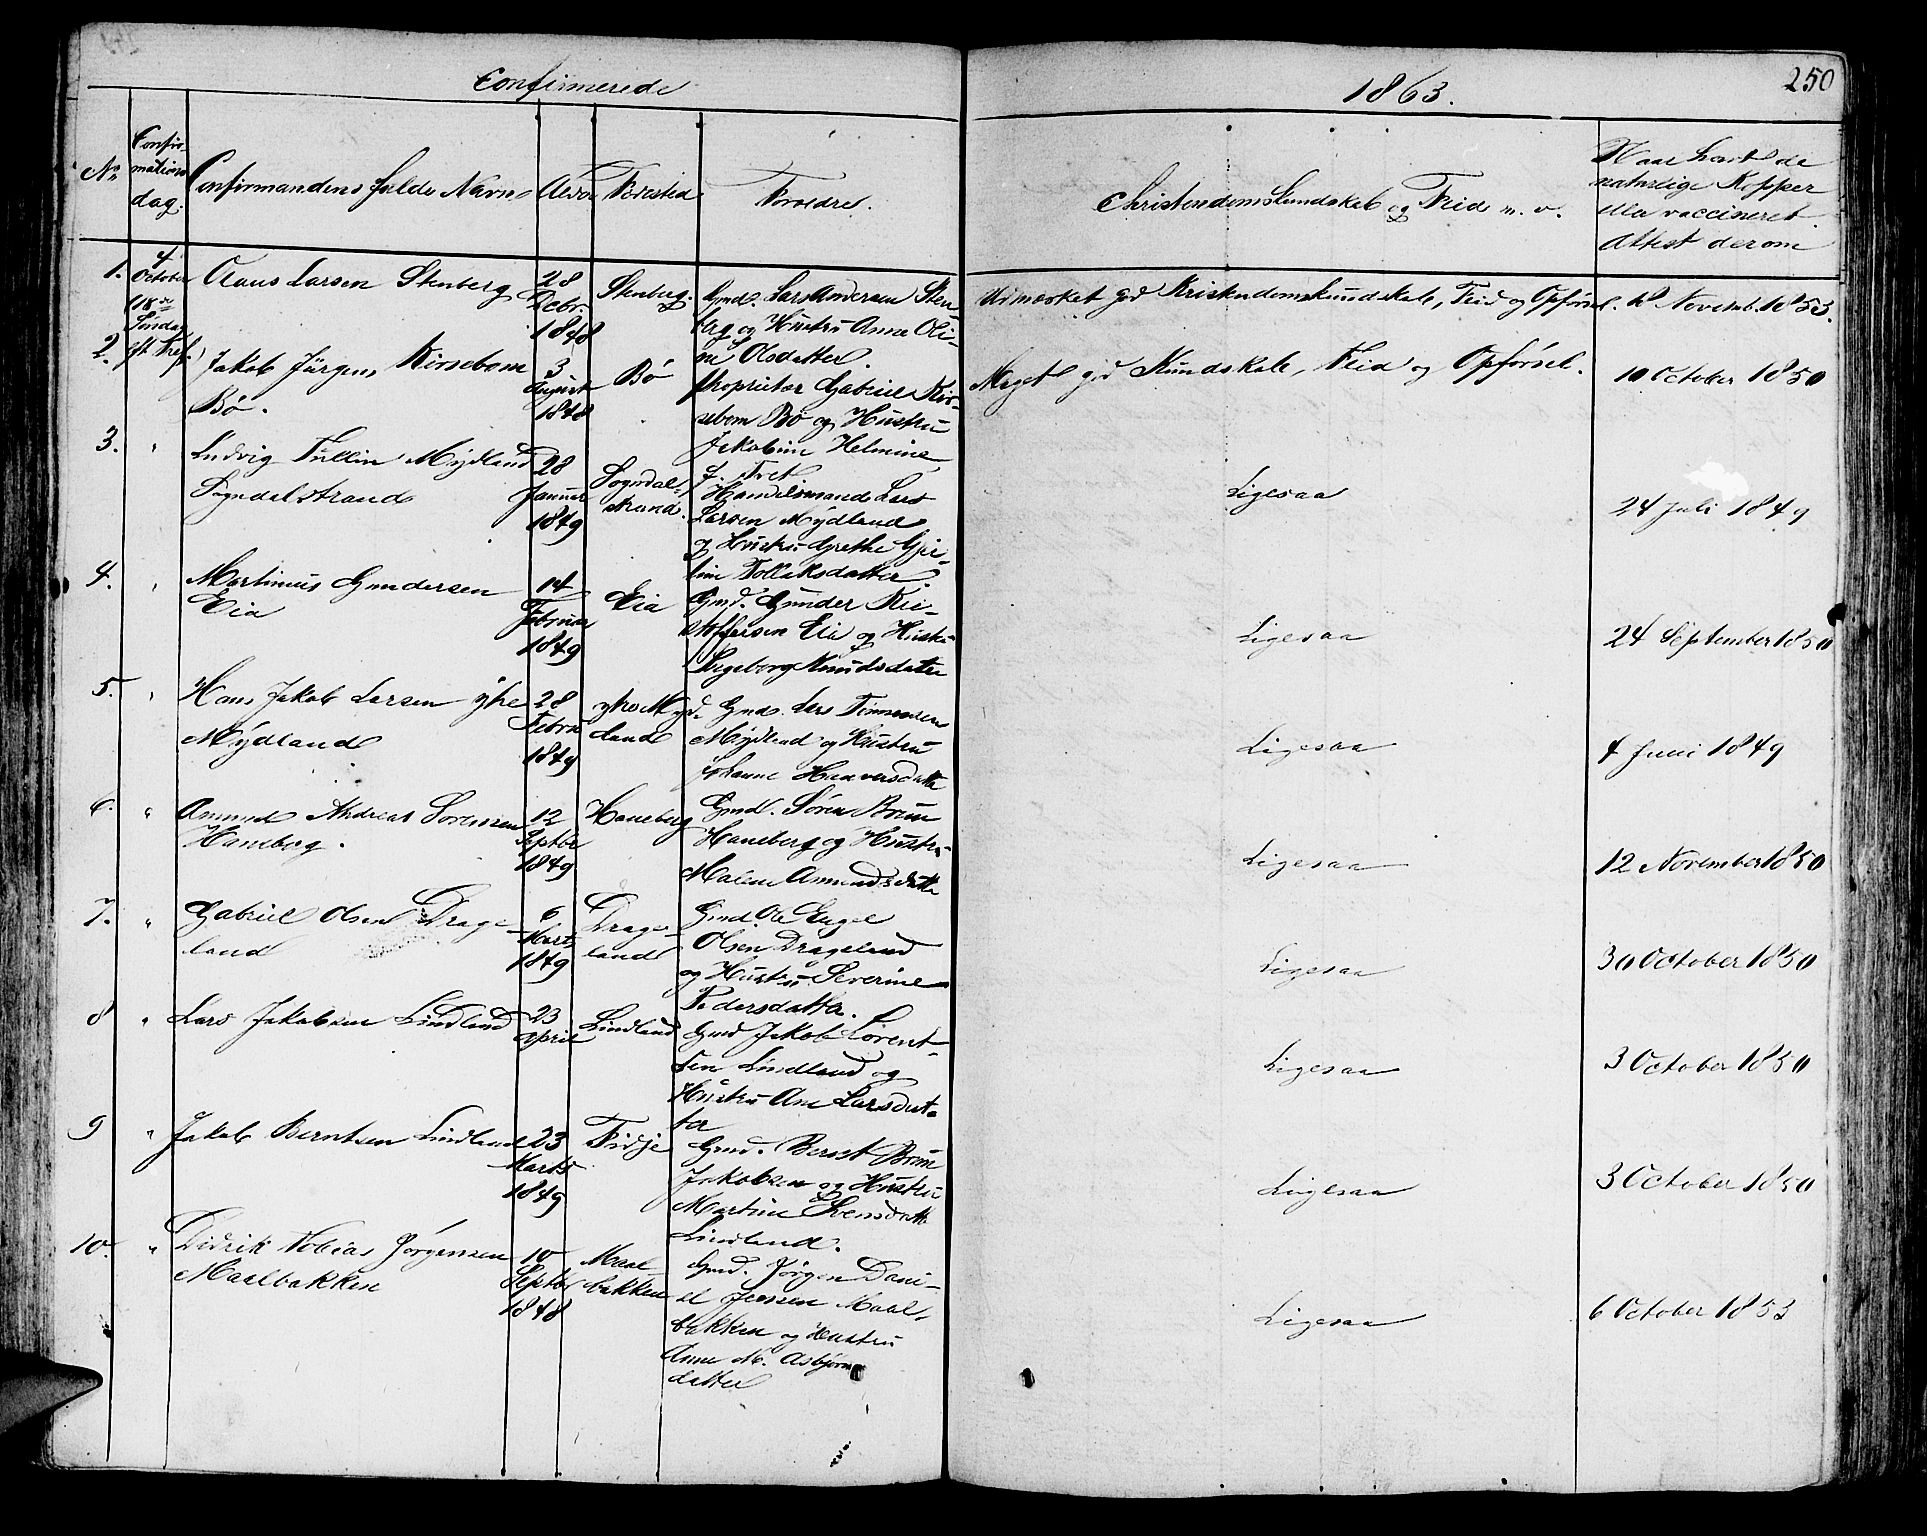 Confirmerede
1863.
250
No
Confir-
mations
dag.
Confirmandens fulde Navn
Alder
Fødested
Forældre.
Christendomskundskab og Flid m. v.
Naar havt de
naturlige Kopper
eller vaccineret
Attest derom
1.
4
October
(18de
Søndag
eft Tref.)
Claus Larsen Stenberg
28
Decbr.
1848
Stenberg.
Gmd. Lars Andersen Sten
berg og Hustru Anne Oli-
ne Olsdatter.
Udmærket god Kristendomskundskab, Flid og Opførsel.
18 Novemb. 1853.
2.
Jakob Jürgens Kirsebom
Bø.
3
August
1848
Bø
Proprietær Gabriel Kir-
sebom Bø og Hustru
Jakobine Helmine
f. Tvet
Meget god Kundskab, Flid og Opførsel.
10 October 1850
3.
Ludvig Tullin Mydland
Sogndalstrand
28
Januar
1849
Sogndal-
strand.
Handelsmand Lars
Larsen Mydland
og Hustru Grethe Gjer-
tine Tollaksdatter.
Ligesaa
24 Juli 1849
4.
Martinius Gundersen
Eia
14
Februar
1849
Eia
Gmd. Gunder Kri-
stoffersen Eia og Hustru
Ingeborg Knudsdatter
Ligesaa
24 September 1850
5.
Hans Jakob Larsen ytre
Mydland
28
Febru
1849
ytre Myd-
land
Gmd. Lars Tønnesen
Mydland og Hustru
Johanne Haaversdatter
Ligesaa
4 Juni 1849
6.
Amund Andreas Sørensen
Haneberg.
12
Septbr
1849
Haneberg
Gmd. Søren Brun
Haneberg og Hustru
Malene Amundsdatter
Ligesaa
12 November 1850
7.
Gabriel Olsen Drage-
land
6
Marts
1849
Drage-
land
Gmd. Ole Engel
Olsen Drageland
og Hustru Severine
Pedersdatter.
Ligesaa
30 October 1850
8
Lars Jakobsen Lindland
23
April
Lindland
Gmd Jakob Lorent-
sen Lindland og
Hustru Ane Larsdat-
ter
Ligesaa
3 October 1850
9
Jakob Berntsen Lindland
23
Marts
1849
Fidje
Gmd. Bernt Brun
Jakobsen og Hustru
Martine Svensdatter
Lindland.
Ligesaa
3 October 1850
10.
Didrik Tobias Jørgensen
Maalbakken
10
Septbr
1848
Maal-
bakken
Gmd. Jørgen Dani-
el Jenssen Maal-
bakken og Hustru
Anne M. Asbjørns
datter
Ligesaa
6 October 1853